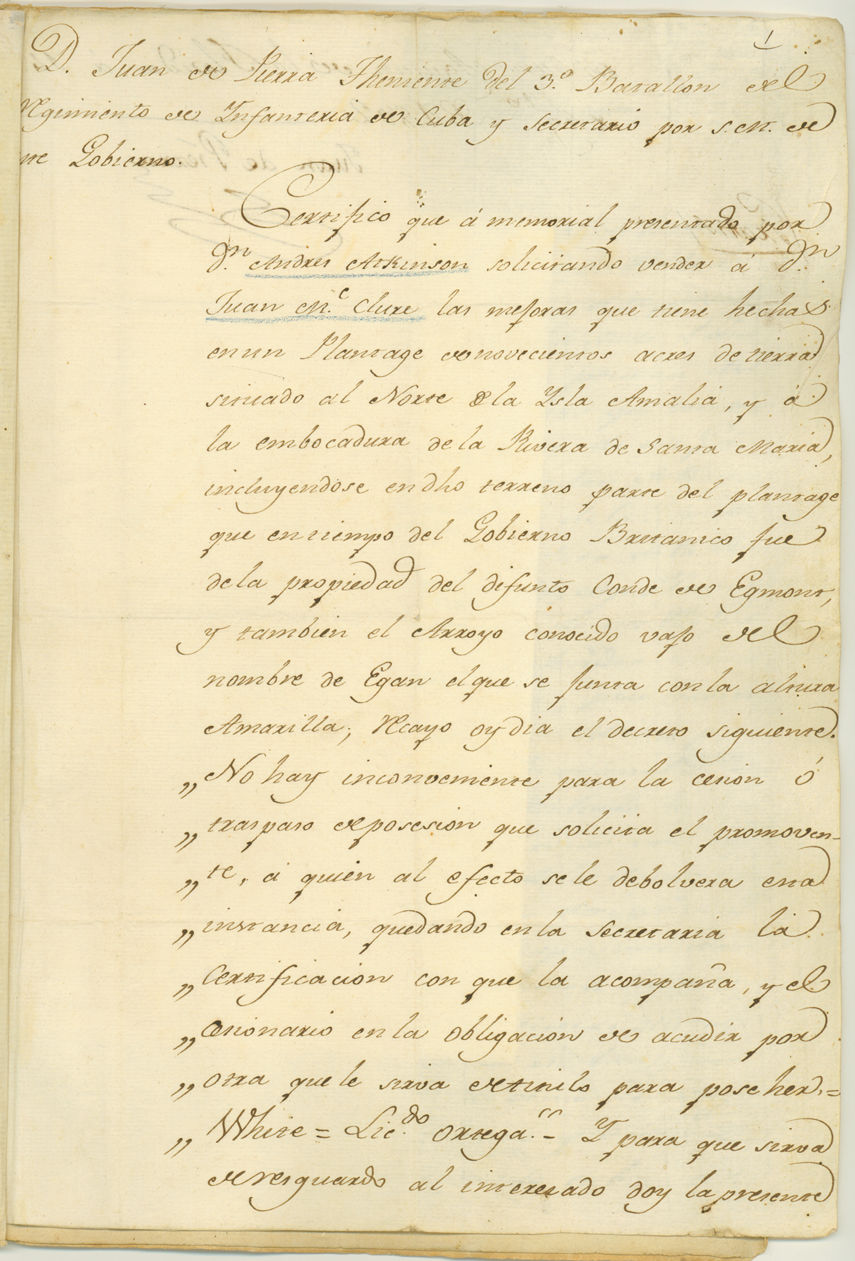 1
D. Juan de Pierra Theniente del 3.º Batallon del
Regimiento de Infanteria de Cuba y Secretario por S. M. de
Gobierno.
Certifico que á memorial presentado por
d.n Andres Atkinson solicitando vender á d.n
Juan M.c Clure las mejoras que tiene hechas
en un Plantage de novecientos acres de tierra
situado al Norte de la Ysla Amalia, y á
la embocadura de la Rivera de Santa Maria,
incluyendose en dho terreno parte del plantage
que en tiempo del Gobierno Britanico fue
de la propiedad del difunto Conde de Egmont,
y tambien el Arroyo conocido vajo del
nombre de Egan el que se junta con la altura
Amarilla; Recayo oy dia el decreto siguiente.
„ No hay inconveniente para la cesion ó
„ traspaso de posesion que solicita el promoven-
„ te, á quien al efecto se le debolvera esta
„ instancia, quedando en la Secretaria la
„ Certificacion con que la acompaña, y el
„ cesionario en la obligacion de acudir por
„ otra que le sirva de titulo para poseher.=
„ White = Lic.do Ortega.= Y para que sirva
de resguardo al interesado doy la presente